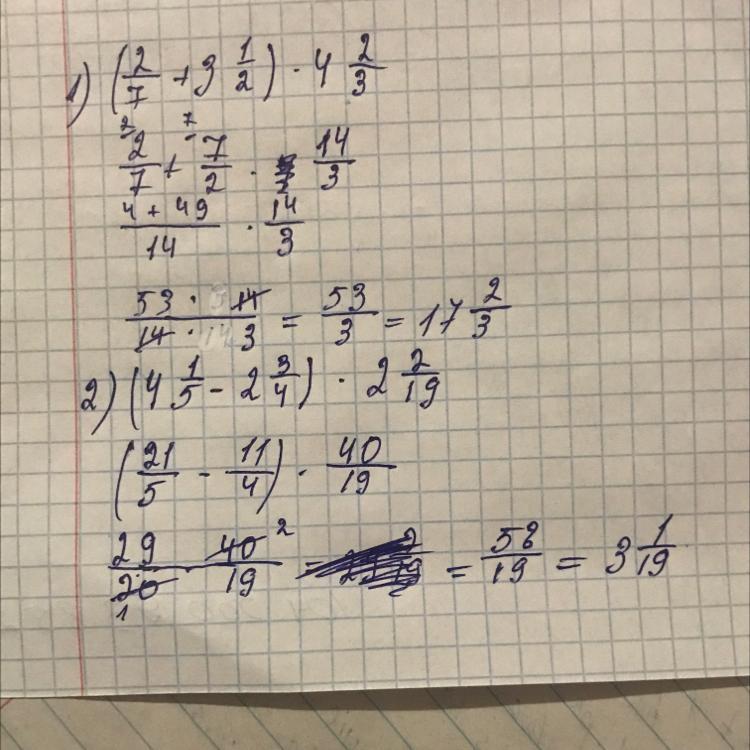 1) (2/7 + 3 1/2) · 4 2/3
2/7 + 7/2 · 14/3
4 + 49/14 · 14/3
53 · 14/14 · 3 = 53/3 = 17 2/3
2) (4 1/5 - 2 3/4) · 2 2/19
(21/5 - 11/4) · 40/19
29/20 · 40/19 = 58/19 = 3 1/19